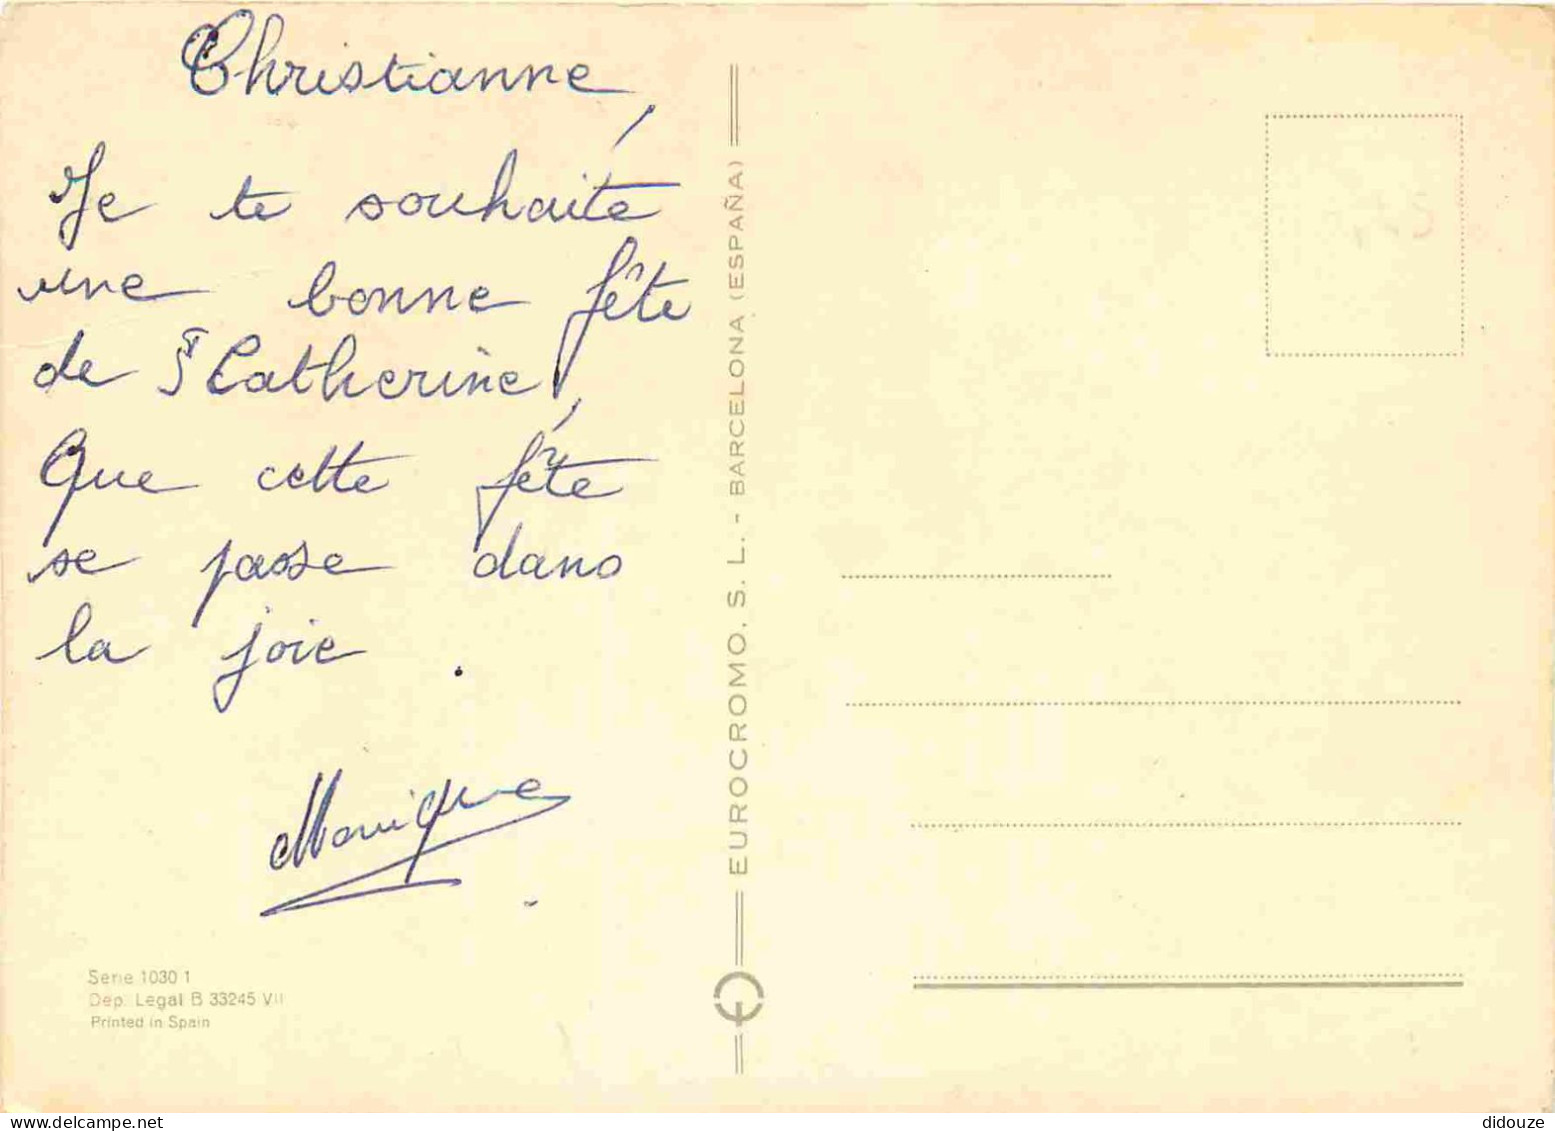 Christianne,
Je te souhaite
une bonne fête
de St Catherine,
Que cette fête
se passe dans
la joie .
Monique
Serie 1030 1
Dep. Legal B 33245 VII
Printed in Spain
EUROCROMO. S. L. - BARCELONA (ESPAÑA)
delcampe.net
didouze